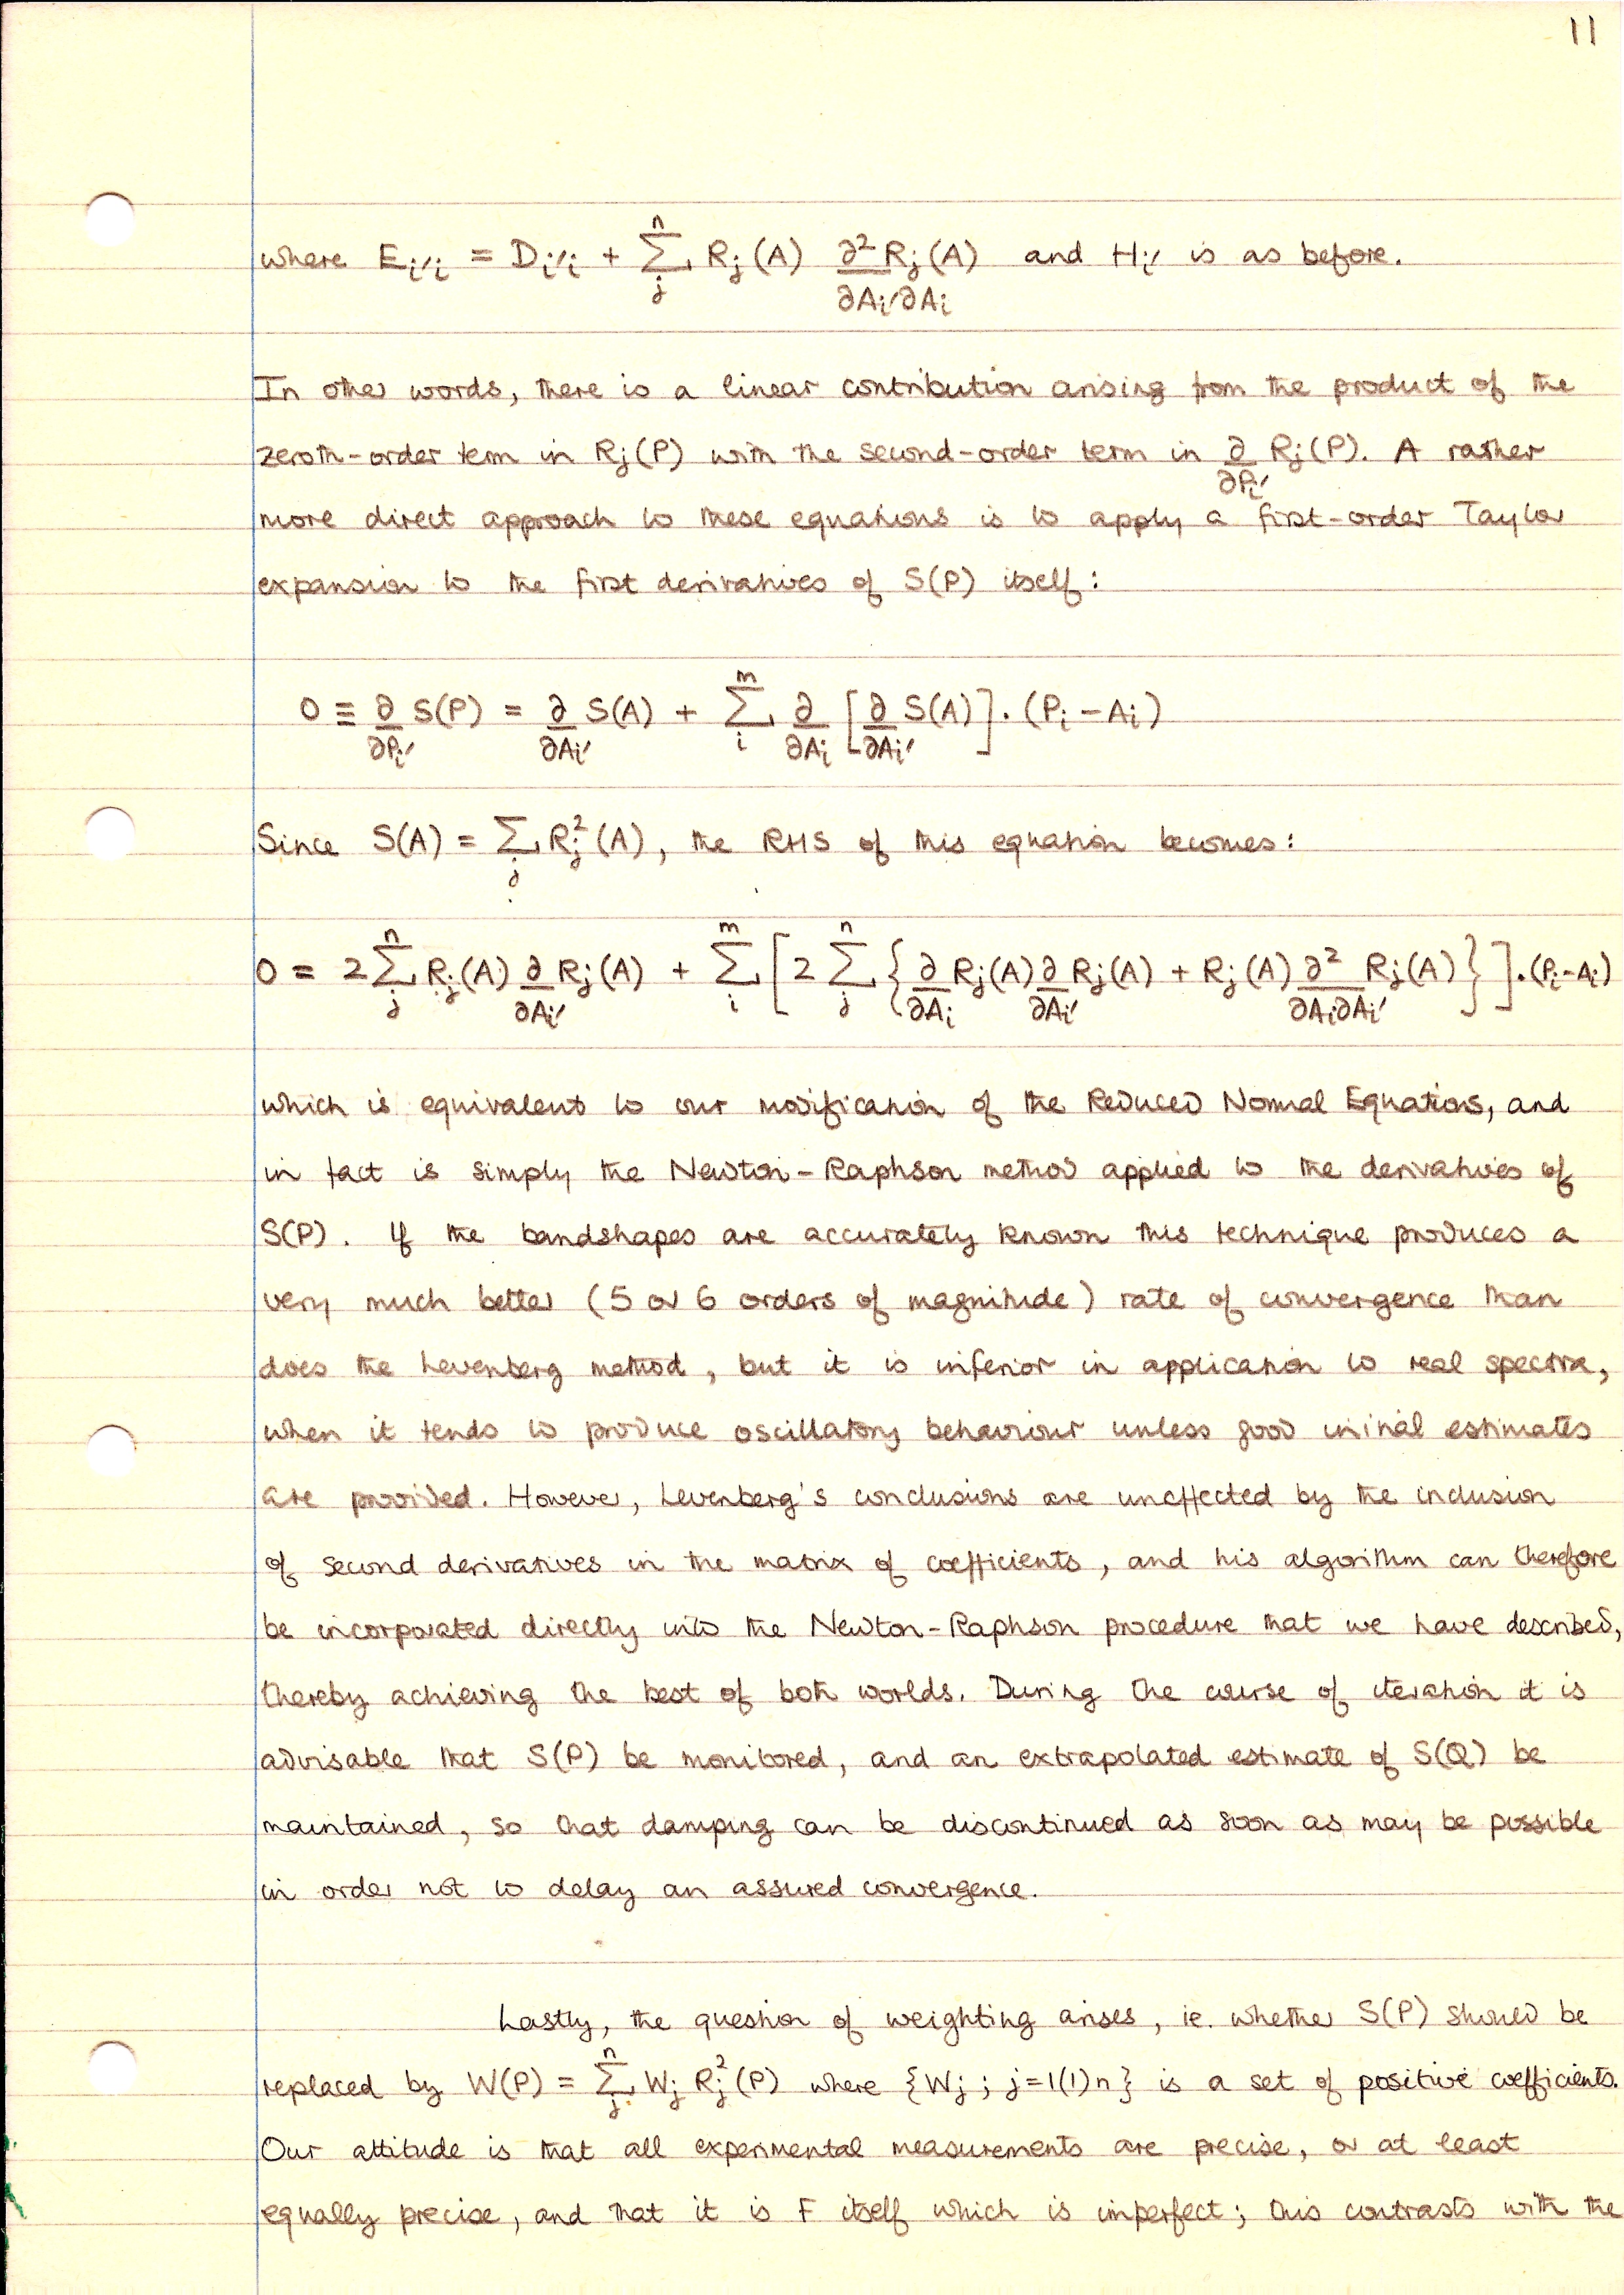 11
where E_{i'i} = D_{i'i} + \sum_{j}^{n} R_j(A) \frac{∂^2 R_j(A)}{∂A_{i'}∂A_i} and H_{i'} is as before.
In other words, there is a linear contribution arising from the product of the
zeroth-order term in R_j(P) with the second-order term in \frac{∂}{∂P_{i'}} R_j(P). A rather
more direct approach to these equations is to apply a first-order Taylor
expansion to the first derivatives of S(P) itself:
0 ≡ \frac{∂}{∂P_{i'}} S(P) = \frac{∂}{∂A_{i'}} S(A) + \sum_{i}^{m} \frac{∂}{∂A_i} [\frac{∂}{∂A_{i'}} S(A)] . (P_i - A_i)
Since S(A) = \sum_{j} R_j^2(A), the RHS of this equation becomes:
0 = 2 \sum_{j}^{n} R_j(A) \frac{∂}{∂A_{i'}} R_j(A) + \sum_{i}^{m} [2 \sum_{j}^{n} {\frac{∂}{∂A_i} R_j(A) \frac{∂}{∂A_{i'}} R_j(A) + R_j(A) \frac{∂^2}{∂A_i∂A_{i'}} R_j(A)}] . (P_i - A_i)
which is equivalent to our modification of the Reduced Normal Equations, and
in fact is simply the Newton-Raphson method applied to the derivatives of
S(P). If the bandshapes are accurately known this technique produces a
very much better (5 or 6 orders of magnitude) rate of convergence than
does the Levenberg method, but it is inferior in application to real spectra,
when it tends to produce oscillatory behaviour unless good initial estimates
are provided. However, Levenberg's conclusions are unaffected by the inclusion
of second derivatives in the matrix of coefficients, and his algorithm can therefore
be incorporated directly into the Newton-Raphson procedure that we have described,
thereby achieving the best of both worlds. During the course of iteration it is
advisable that S(P) be monitored, and an extrapolated estimate of S(Q) be
maintained, so that damping can be discontinued as soon as may be possible
in order not to delay an assured convergence.
Lastly, the question of weighting arises, ie. whether S(P) should be
replaced by W(P) = \sum_{j}^{n} W_j R_j^2(P) where {W_j ; j=1(1)n} is a set of positive coefficients.
Our attitude is that all experimental measurements are precise, or at least
equally precise, and that it is F itself which is imperfect; this contrasts with the